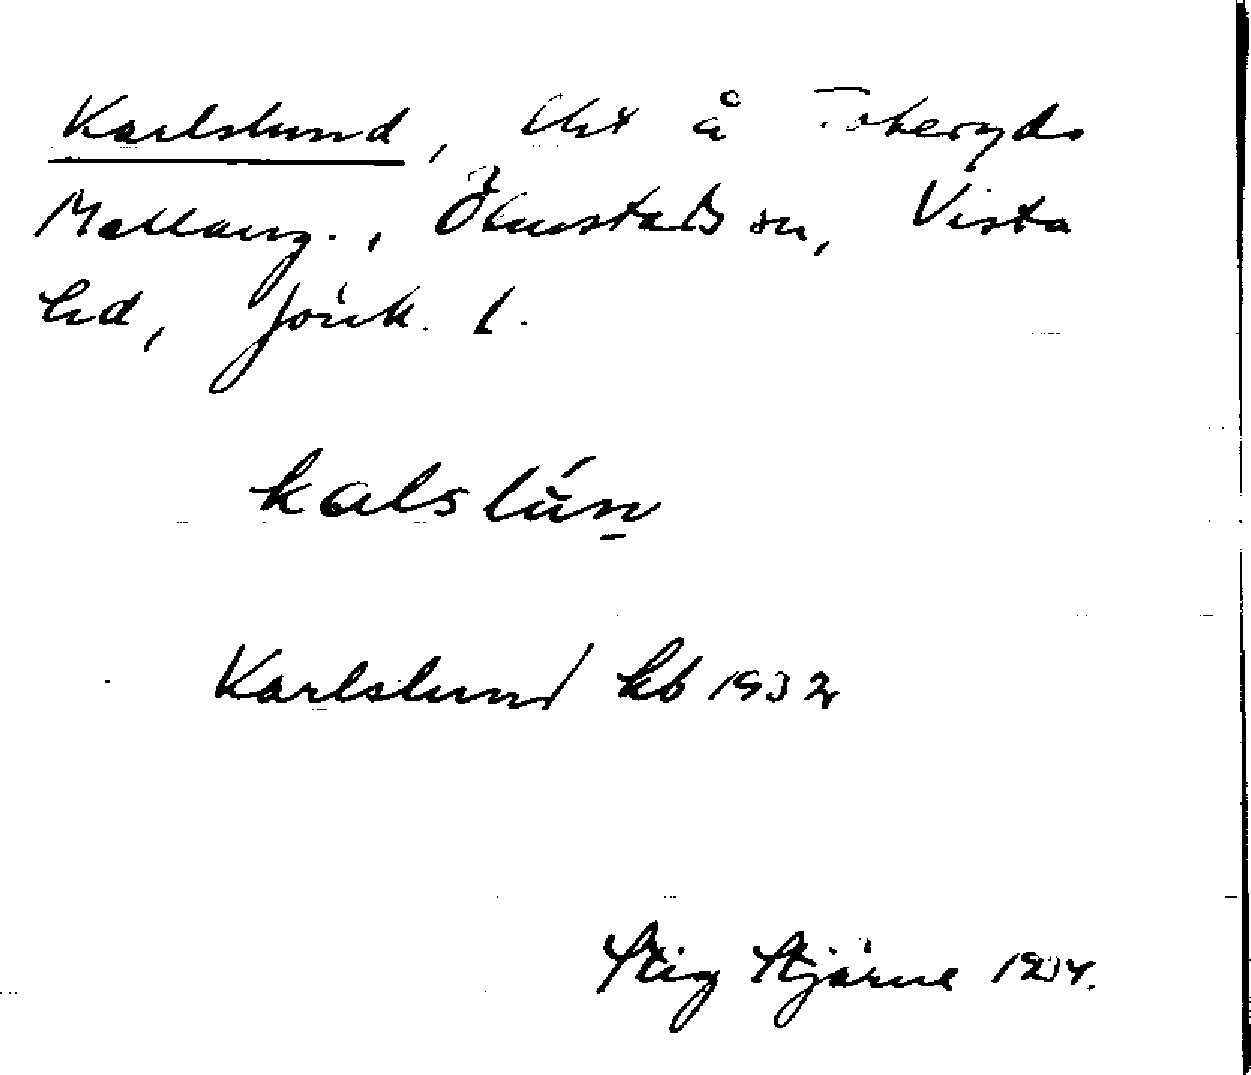 Karlslund, lht å Tokeryds
Mellang., Ölmstads sn, Vista
hd, Jönk. l.
kalslún
Karlslund kb 1932
Stig Stjärne 1934.